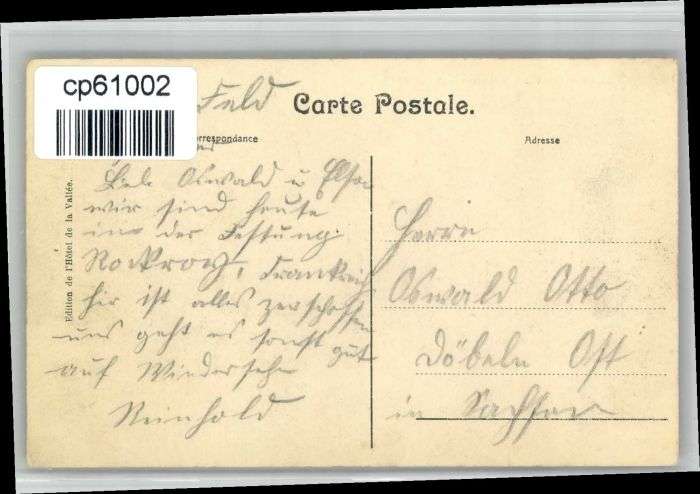 cp61002
Feld
Carte Postale.
orrespondance
Adresse
Edition de l'Hôtel de la Vallée.
Lieb. Oswald u
wir sind heute
in der Festung
Rockroy, Frankreich
hir ist alles zerschossen
uns geht es sonst gut
auf Wiedersehn
Reinhold
Herrn
Oswald Otto
Döbeln Ost
in Sachsen